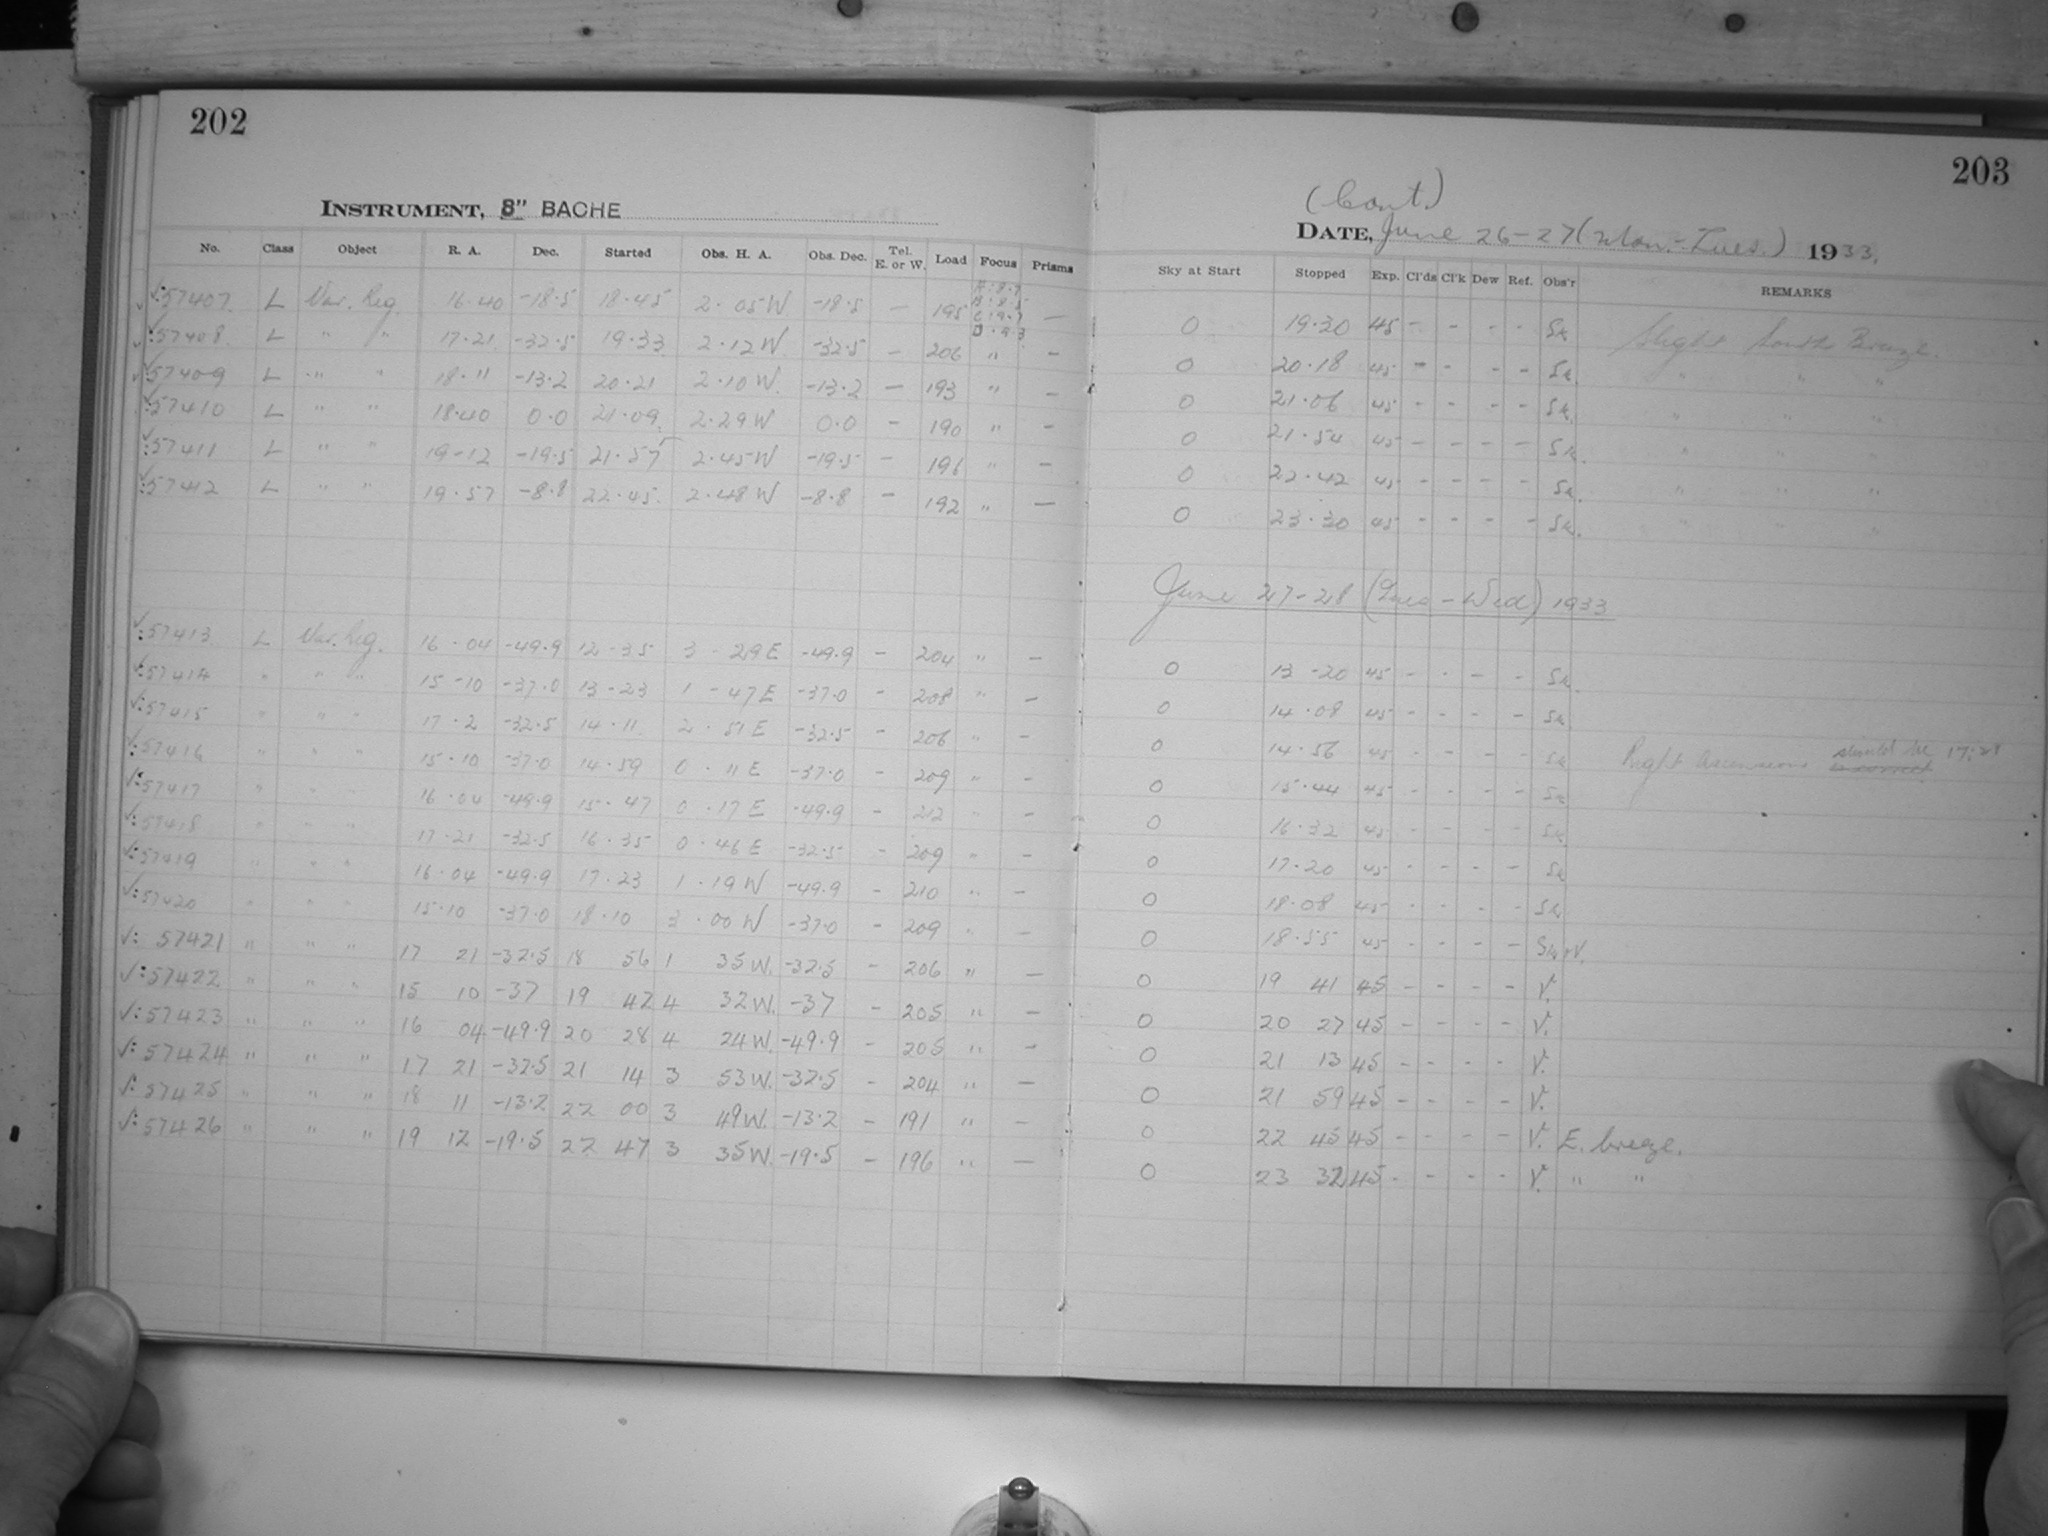 202
INSTRUMENT, 8" BACHE
No. Class Object R. A. Dec. Started Obs. H. A. Obs. Dec. Tel. E. or W. Load Focus Prisms
√:57407 L Var. Reg. 16.40 -18.5 18.45 2.05W -18.5 — 195 —
√:57408 L " " 17.21 -32.5 19.33 2.12W -32.5 — 206 " —
√:57409 L " " 18.11 -13.2 20.21 2.10W -13.2 — 193 " —
√:57410 L " " 18.40 0.0 21.09 2.29W 0.0 - 190 " -
√:57411 L " " 19-12 -19.5 21.57 2.45W -19.5 - 196 " -
√:57412 L " " 19.57 -8.8 22.45 2.48W -8.8 - 192 " —
√:57413 L Var. Reg. 16.04 -49.9 12-35 3-29E -49.9 - 204 " —
√:57414 " " " 15-10 -37.0 13-23 1-47E -37.0 - 208 " —
√:57415 " " " 17.2 -32.5 14.11 2.51E -32.5 - 206 " -
√:57416 " " " 15.10 -37.0 14.59 0.11E -37.0 - 209 " -
√:57417 " " " 16.04 -49.9 15.47 0.17E -49.9 - 212 " -
√:57418 " " " 17-21 -32.5 16.35 0.46E -32.5 - 209 " -
√:57419 " " " 16.04 -49.9 17.23 1.19W -49.9 - 210 " -
√:57420 " " " 15.10 -37.0 18.10 3.00W -37.0 - 209 " -
√: 57421 " " " 17 21 -32.5 18 56 1 35W. -32.5 - 206 " —
√:57422 " " " 15 10 -37 19 42 4 32W. -37 - 205 " —
√:57423 " " " 16 04 -49.9 20 28 4 24W. -49.9 - 205 " —
√:57424 " " " 17 21 -32.5 21 14 3 53W. -32.5 - 204 " —
√:57425 " " " 18 11 -13.2 22 00 3 49W. -13.2 - 191 " -
√:57426 " " " 19 12 -19.5 22 47 3 35W. -19.5 - 196 " —
203
(Cont.)
DATE, June 26-27 (Mon.-Tues.) 1933.
Sky at Start Stopped Exp. Cl'ds Cl'k Dew Ref. Obs'r REMARKS
0 19.30 45 - - - - Sk Slight South Breeze.
0 20.18 45 - - - - Sk. " " "
0 21.06 45 - - - - Sk. " " "
0 21.54 45 - - - - Sk. " " "
0 22.42 45 - - - - Sk. " " "
0 23.30 45 - - - - Sk. " " "
June 27-28 (Tues-Wed) 1933
0 13-20 45 - - - - Sk.
0 14.08 45 - - - - Sk
0 14.56 45 - - - - Sk Right Ascensions should be 17:21
0 15.44 45 - - - - Sk
0 16.32 45 - - - - Sk
0 17.20 45 - - - - Sk
0 18.08 45 - - - - Sk
0 18.55 45 - - - - Sk V.
0 19 41 45 - - - - V.
0 20 27 45 - - - - V.
0 21 13 45 - - - - V.
0 21 59 45 - - - - V.
0 22 45 45 - - - - V. E. breeze.
0 23 32 45 - - - - V. " "